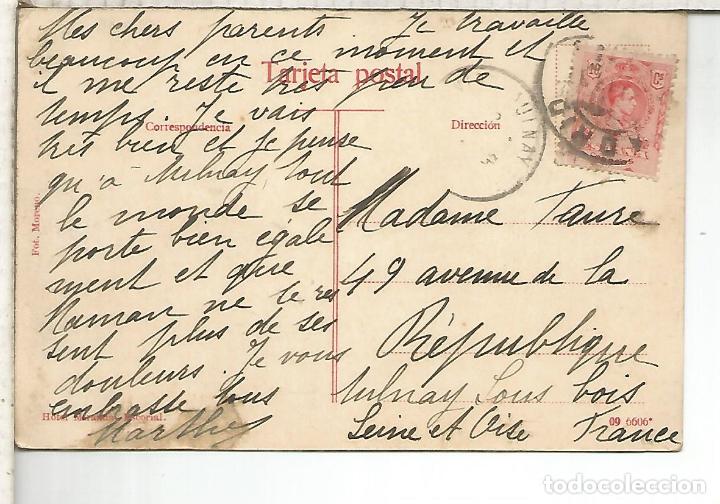 Mes chers parents. Je travaille
beaucoup en ce moment et
il me reste très peu de
temps. Je vais
très bien et je pense
qu'à Aulnay tout
le monde se
porte bien égale
ment et que
Maman ne le res
sent plus de ses
douleurs. Je vous
embrasse tous
Marthe
Tarjeta postal
Correspondencia
Dirección
Madame Faure
49 avenue de la
République
Aulnay Sous bois
Seine et Oise France
Fot. Moreno.
Hotel Miranda. Escorial.
09 6606*
AULNAY
todocoleccion.net